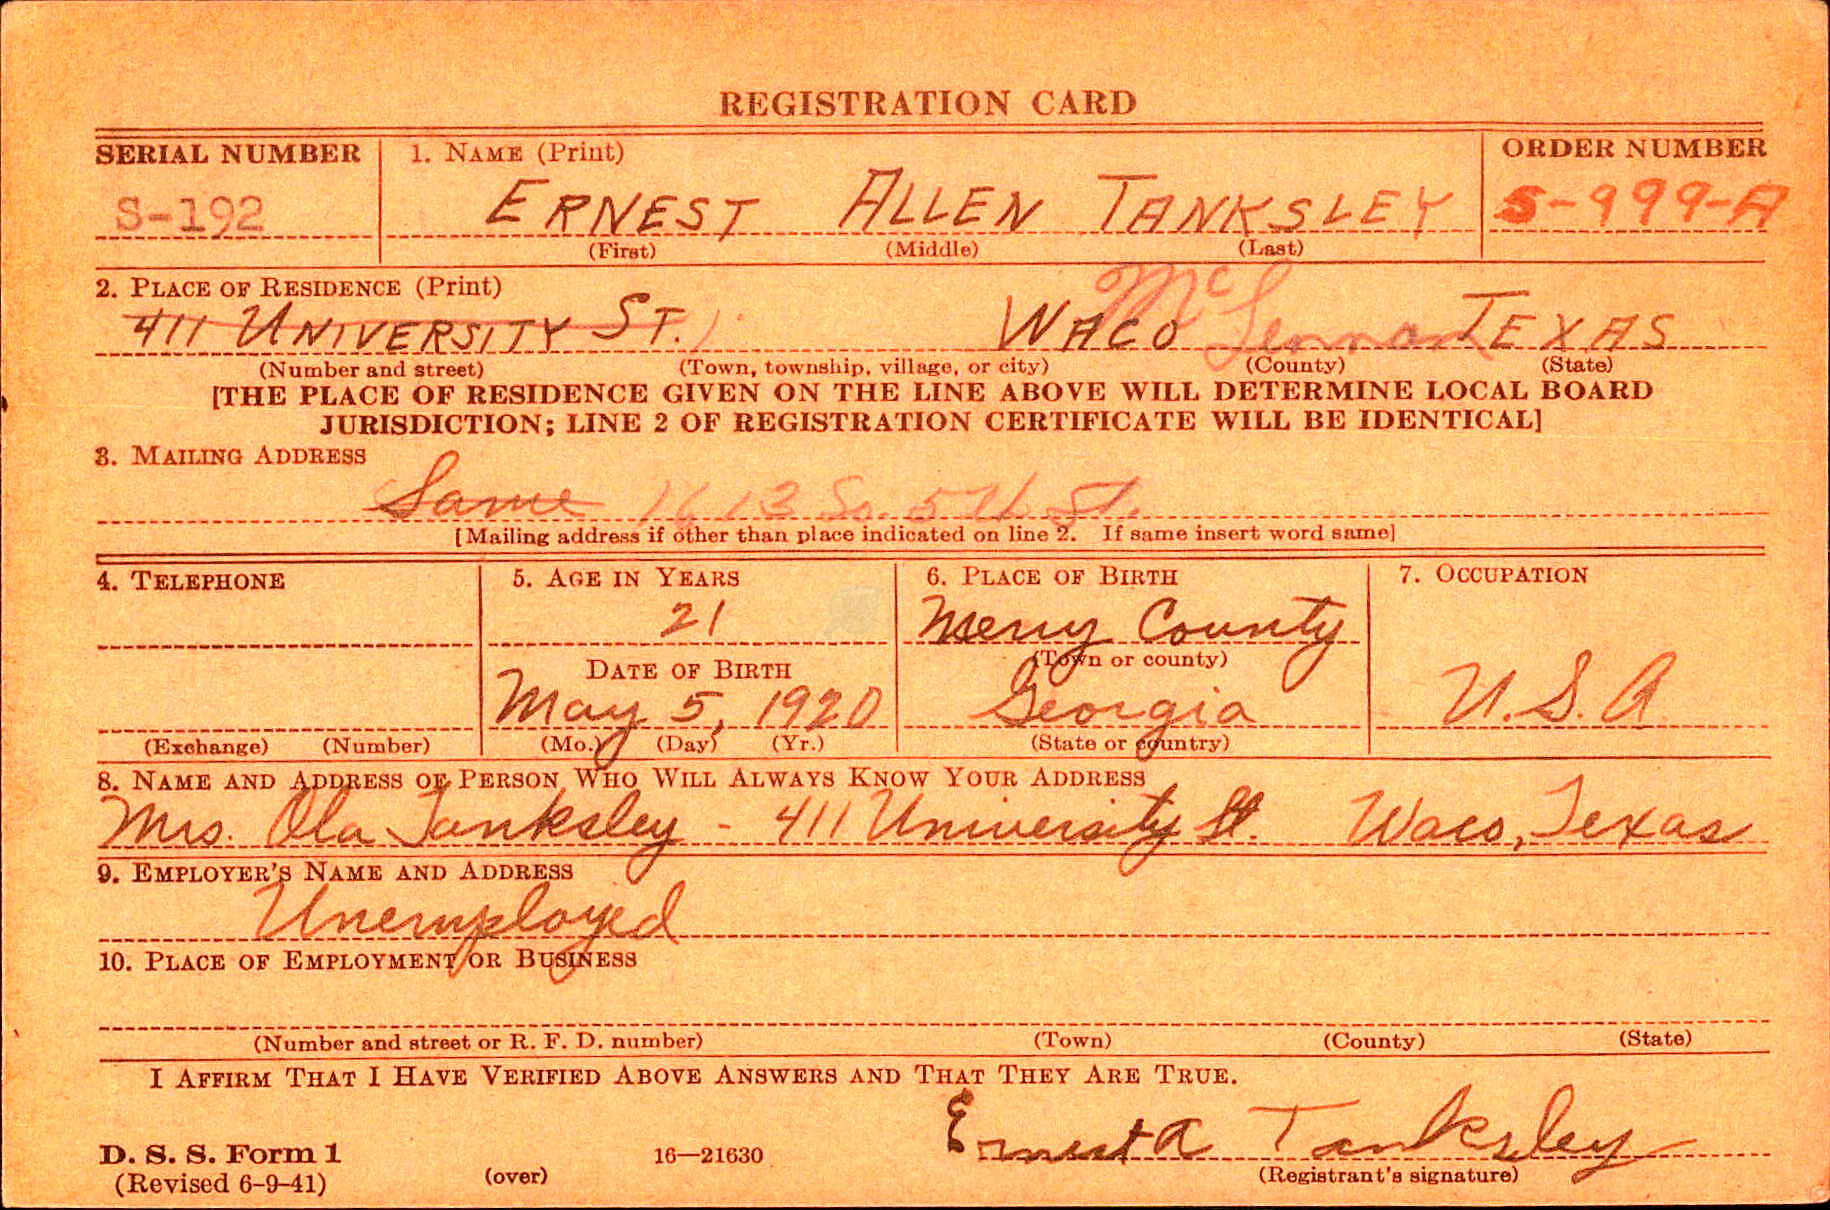 REGISTRATION CARD
SERIAL NUMBER 1. NAME (Print) ORDER NUMBER
S-192 ERNEST ALLEN TANKSLEY S-999-A
(First) (Middle) (Last)
2. PLACE OF RESIDENCE (Print)
411 UNIVERSITY ST. WACO McLennan TEXAS
(Number and street) (Town, township, village, or city) (County) (State)
[THE PLACE OF RESIDENCE GIVEN ON THE LINE ABOVE WILL DETERMINE LOCAL BOARD
JURISDICTION; LINE 2 OF REGISTRATION CERTIFICATE WILL BE IDENTICAL]
3. MAILING ADDRESS
Same 1613 So. 5th St.
[Mailing address if other than place indicated on line 2. If same insert word same]
4. TELEPHONE 5. AGE IN YEARS 6. PLACE OF BIRTH 7. OCCUPATION
21 County
DATE OF BIRTH (Town or county)
May 5, 1920 Georgia U.S.A
(Exchange) (Number) (Mo.) (Day) (Yr.) (State or country)
8. NAME AND ADDRESS OF PERSON WHO WILL ALWAYS KNOW YOUR ADDRESS
Mrs. Ola Tanksley - 411 University St. Waco, Texas
9. EMPLOYER'S NAME AND ADDRESS
Unemployed
10. PLACE OF EMPLOYMENT OR BUSINESS
(Number and street or R. F. D. number) (Town) (County) (State)
I AFFIRM THAT I HAVE VERIFIED ABOVE ANSWERS AND THAT THEY ARE TRUE.
Ernest A Tanksley
D. S. S. Form 1 16—21630
(Revised 6-9-41) (over) (Registrant's signature)